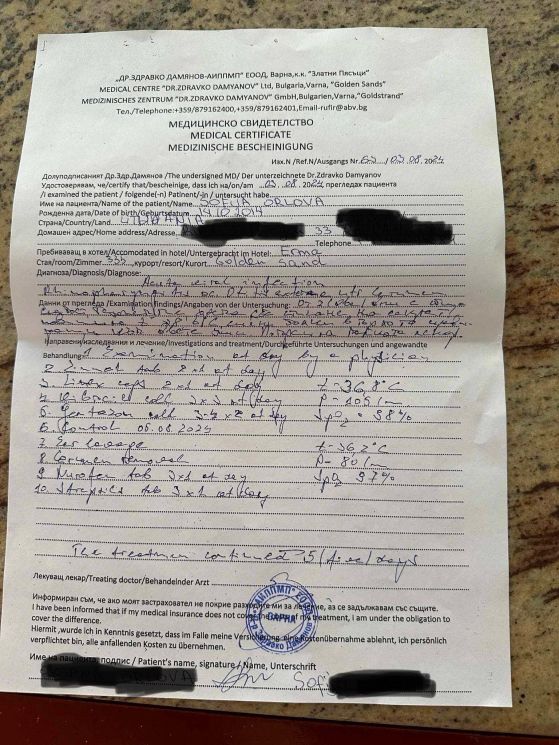 „ДР.ЗДРАВКО ДАМЯНОВ-АИППМП" ЕООД, Варна,к.к. "Златни Пясъци"
MEDICAL CENTRE "DR.ZDRAVKO DAMYANOV" Ltd, Bulgaria,Varna, "Golden Sands"
MEDIZINISCHES ZENTRUM "DR.ZDRAVKO DAMYANOV" GmbH,Bulgarien,Varna,"Goldstrand"
Тел./Telephone:+359/879162400,+359/879162401,Email-rufir@abv.bg
МЕДИЦИНСКО СВИДЕТЕЛСТВО
MEDICAL CERTIFICATE
MEDIZINISCHE BESCHEINIGUNG
Изх.N /Ref.N/Ausgangs Nr. 63 / 03.08. 2024
Долуподписаният Др.Здр.Дамянов /The undersigned MD/ Der unterzeichnete Dr.Zdravko Damyanov
Удостоверявам, че/certify that/bescheinige, dass ich на/on/am 03.08. 2024, прегледах пациента
/I examined the patient / folgende(n) Patinent/-in / untersucht habe
Име на пациента/Name of the patient/Name SOFIJA ORLOVA
Рожденна дата/Date of birth/Geburtsdatum 14.10.2014
Страна/Country/Land
Домашен адрес/Home address/Adresse 33
Telephone
Пребиваващ в хотел/Accomodated in hotel/Untergebracht im Hotel: Erma
Стая/room/Zimmer 335 курорт/resort/Kurort Golden Sand
Диагноза/Diagnosis/Diagnose:
Acute viral infection
Данни от прегледа /Examination findings/Angaben von der Untersuchung:
Направени изследвания и лечение/Investigations and treatment/Durchgeführte Untersuchungen und angewandte
Behandlung: 1. Examination at day by a physician
2. tab 2x1 at day
3. caps 2x1 at day t-36,8°C
4. 3x at day P-105/m
5. at day SpO2 - 98%
6. Control 06.08.2024
7. Ear lavage t-36,2°C
8. Cerumen removal P- 80/m
9. Nurofen tab 3x1 at day SpO2 97%
10. Strepsils tab 3x1 at day
The treatment continued 5 /five/ days
Лекуващ лекар/Treating doctor/Behandelnder Arzt
Информиран съм, че ако моят застраховател не покрие разходите ми за лечение, аз се задължавам със същите.
I have been informed that if my medical insurance does not cover the cost of my treatment, I am under the obligation to
cover the difference.
Hiermit ,wurde ich in Kenntnis gesetzt, dass im Falle meine Versicherung eine Kostenübernahme ablehnt, ich persönlich
verpflichtet bin, alle anfallenden Kosten zu übernehmen.
ВАРНА
Име на пациента,подпис / Patient's name, signature / Name, Unterschrift
Sofi